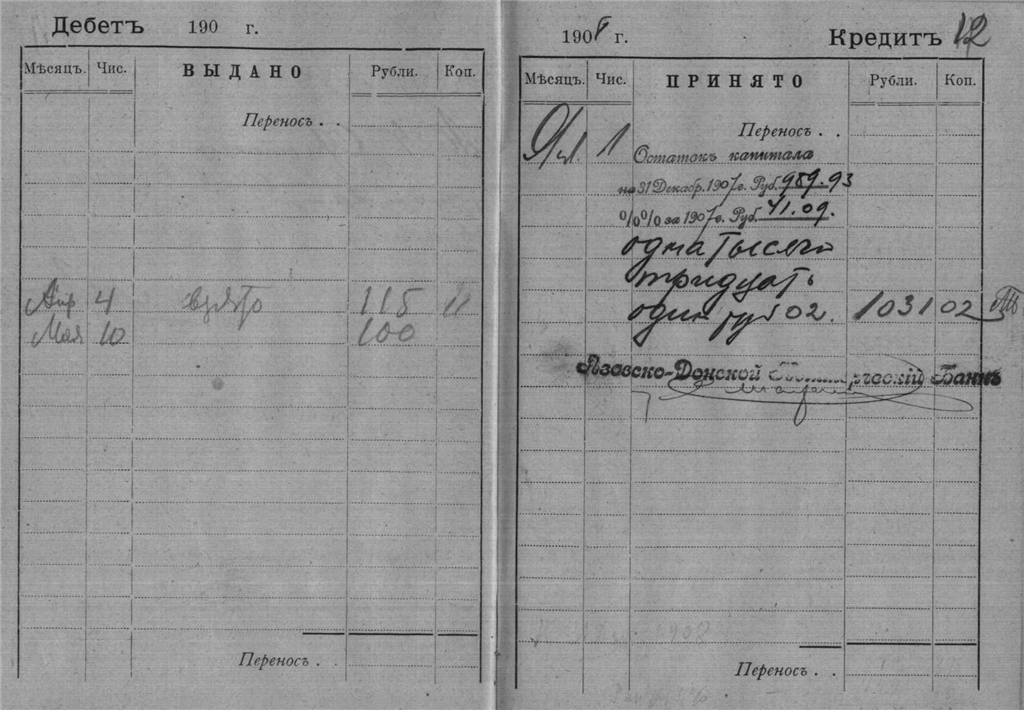 Дебетъ 190 г.
Мѣсяцъ. Чис. ВЫДАНО Рубли. Коп.
Переносъ . .
Апр 4 взято 115 11
Мая 10 100
Переносъ . .
1908 г. Кредитъ 12
Мѣсяцъ. Чис. ПРИНЯТО Рубли. Коп.
Переносъ . .
1 Остатокъ капитала
на 31 Декабр. 1907 г. Руб. 989.93
%% за 1907 г. Руб. 41.09.
одна тысяча
тридцать
один руб 02. 1031 02
Азовско-Донской Коммерческій Банкъ
Переносъ . .